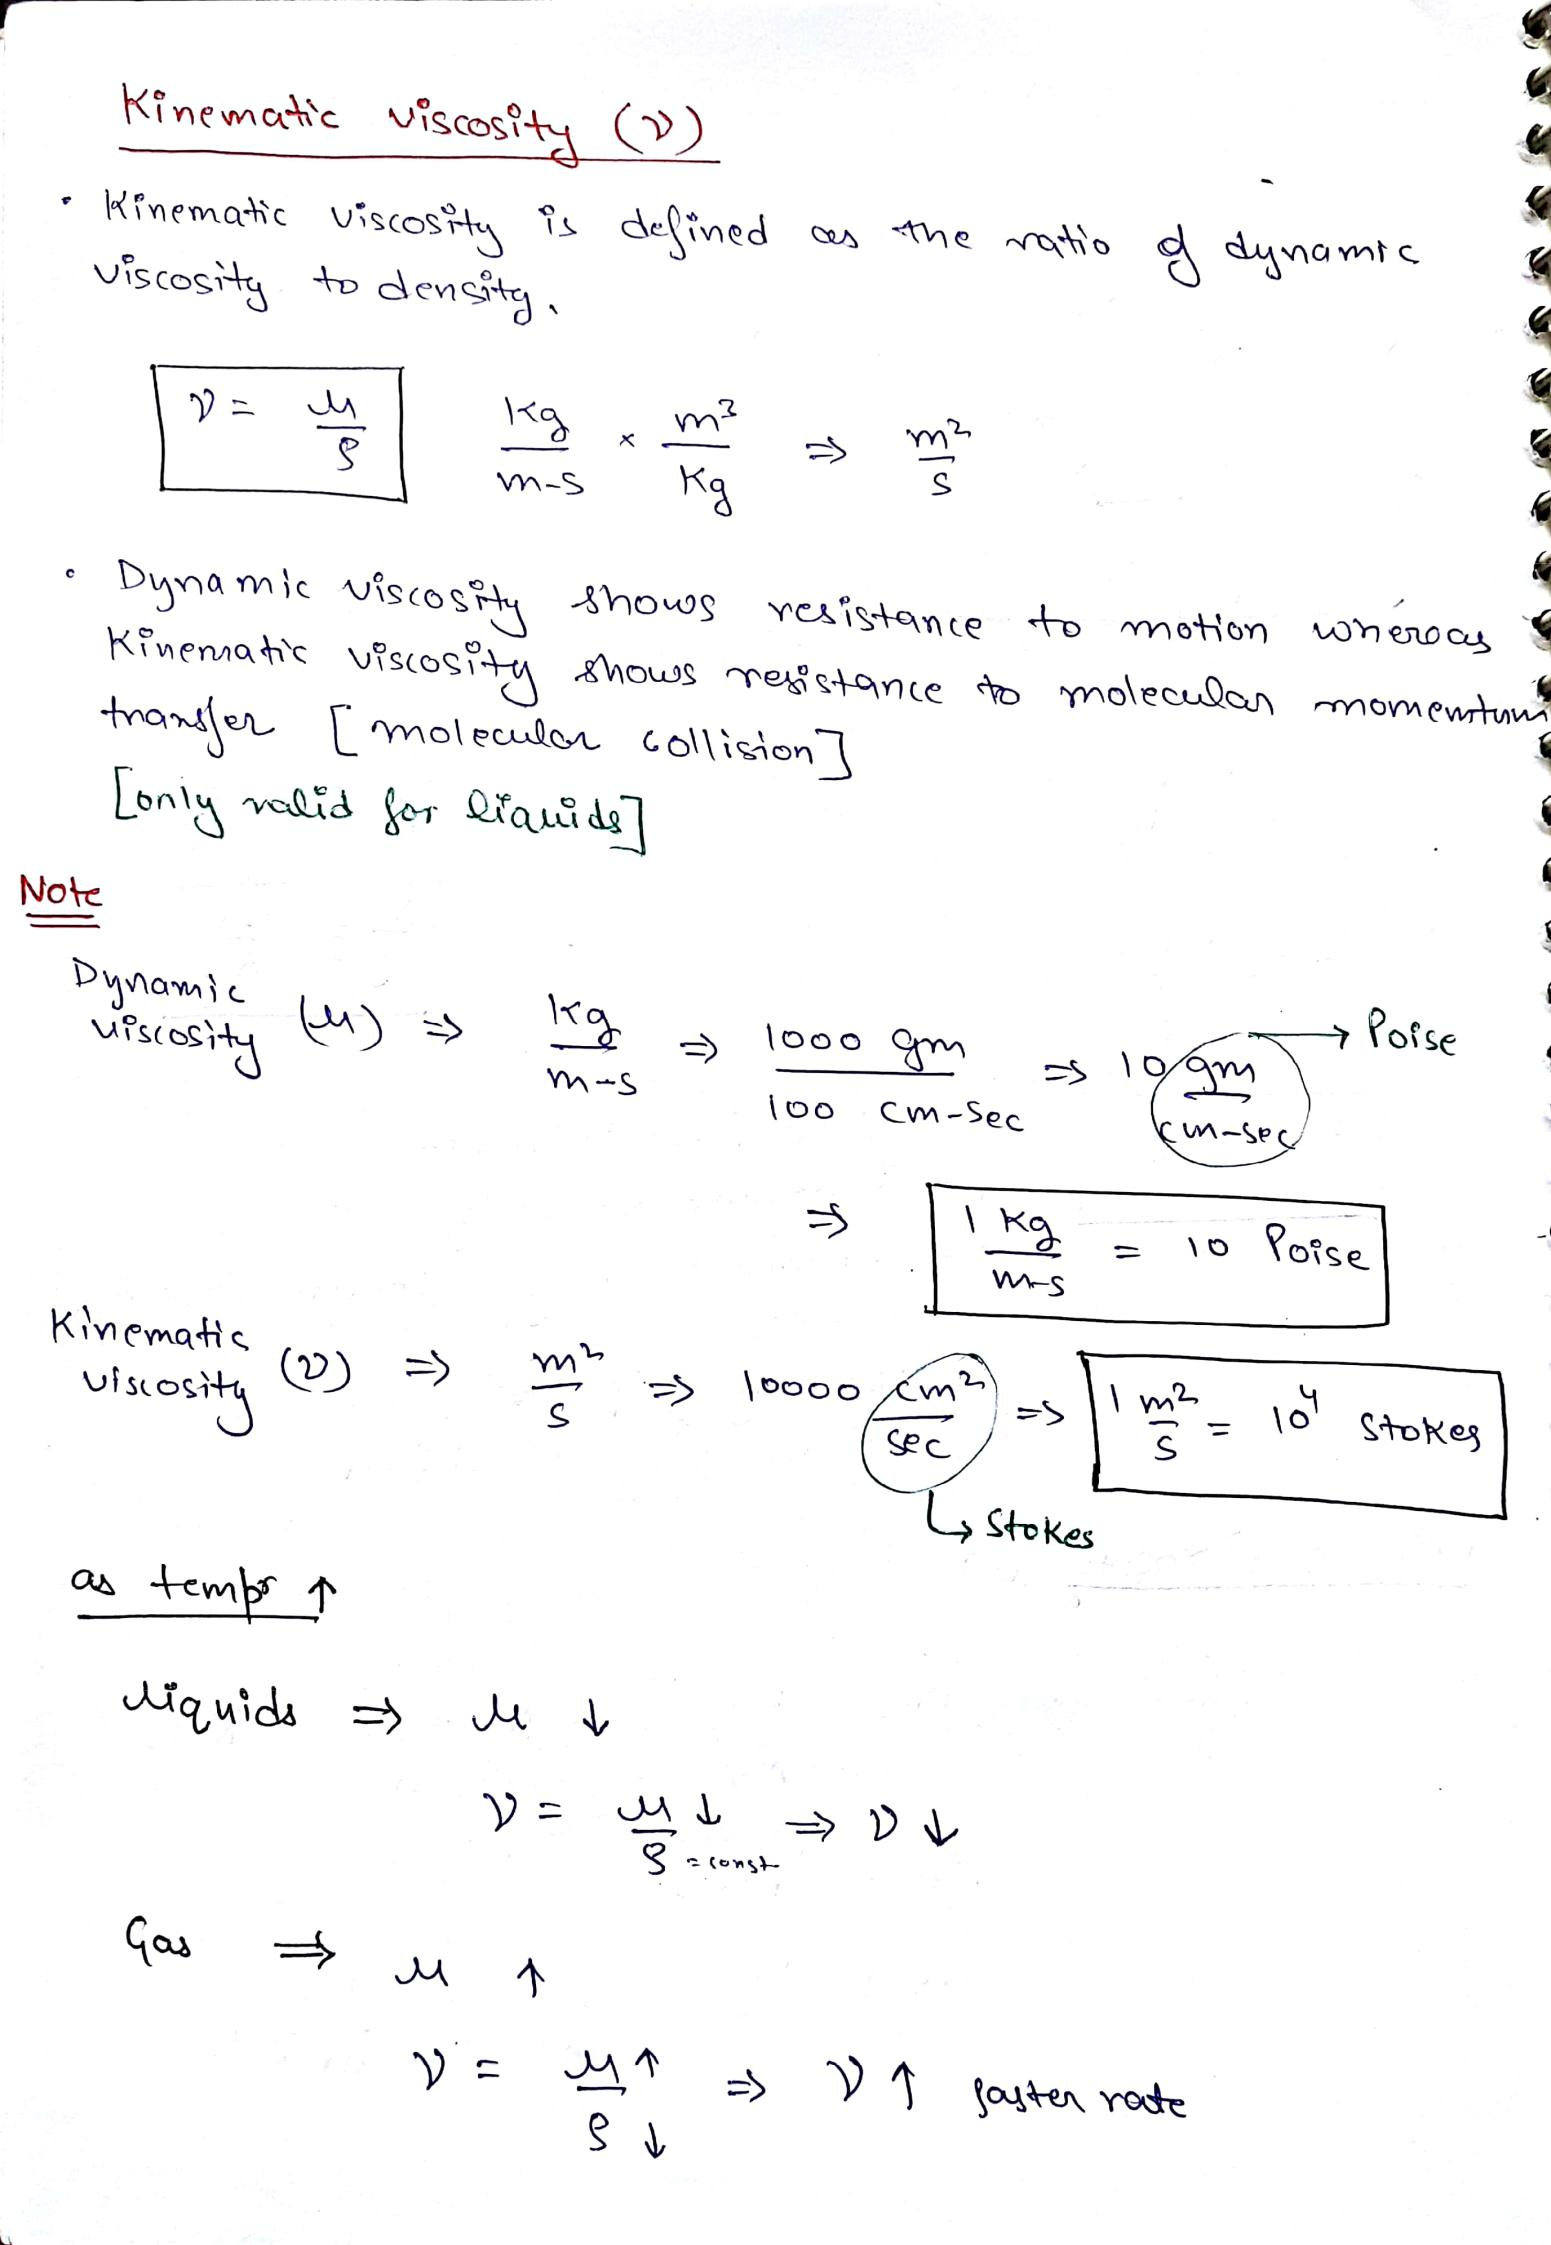 Kinematic viscosity (ν)
• Kinematic viscosity is defined as the ratio of dynamic
viscosity to density.
ν = μ/ρ   kg/m-s × m³/kg ⇒ m²/s
• Dynamic viscosity shows resistance to motion whereas
Kinematic viscosity shows resistance to molecular momentum
transfer [molecular collision]
[only valid for liquids]
Note
Dynamic viscosity (μ) ⇒ kg/m-s ⇒ 1000 gm/100 cm-sec ⇒ 10 gm/cm-sec → Poise
⇒ 1 kg/m-s = 10 Poise
Kinematic viscosity (ν) ⇒ m²/s ⇒ 10000 cm²/sec ⇒ 1 m²/s = 10⁴ Stokes
↳ Stokes
as tempr ↑
liquids ⇒ μ ↓
ν = μ↓/ρ = const ⇒ ν ↓
Gas ⇒ μ ↑
ν = μ↑/ρ↓ ⇒ ν ↑ faster rate